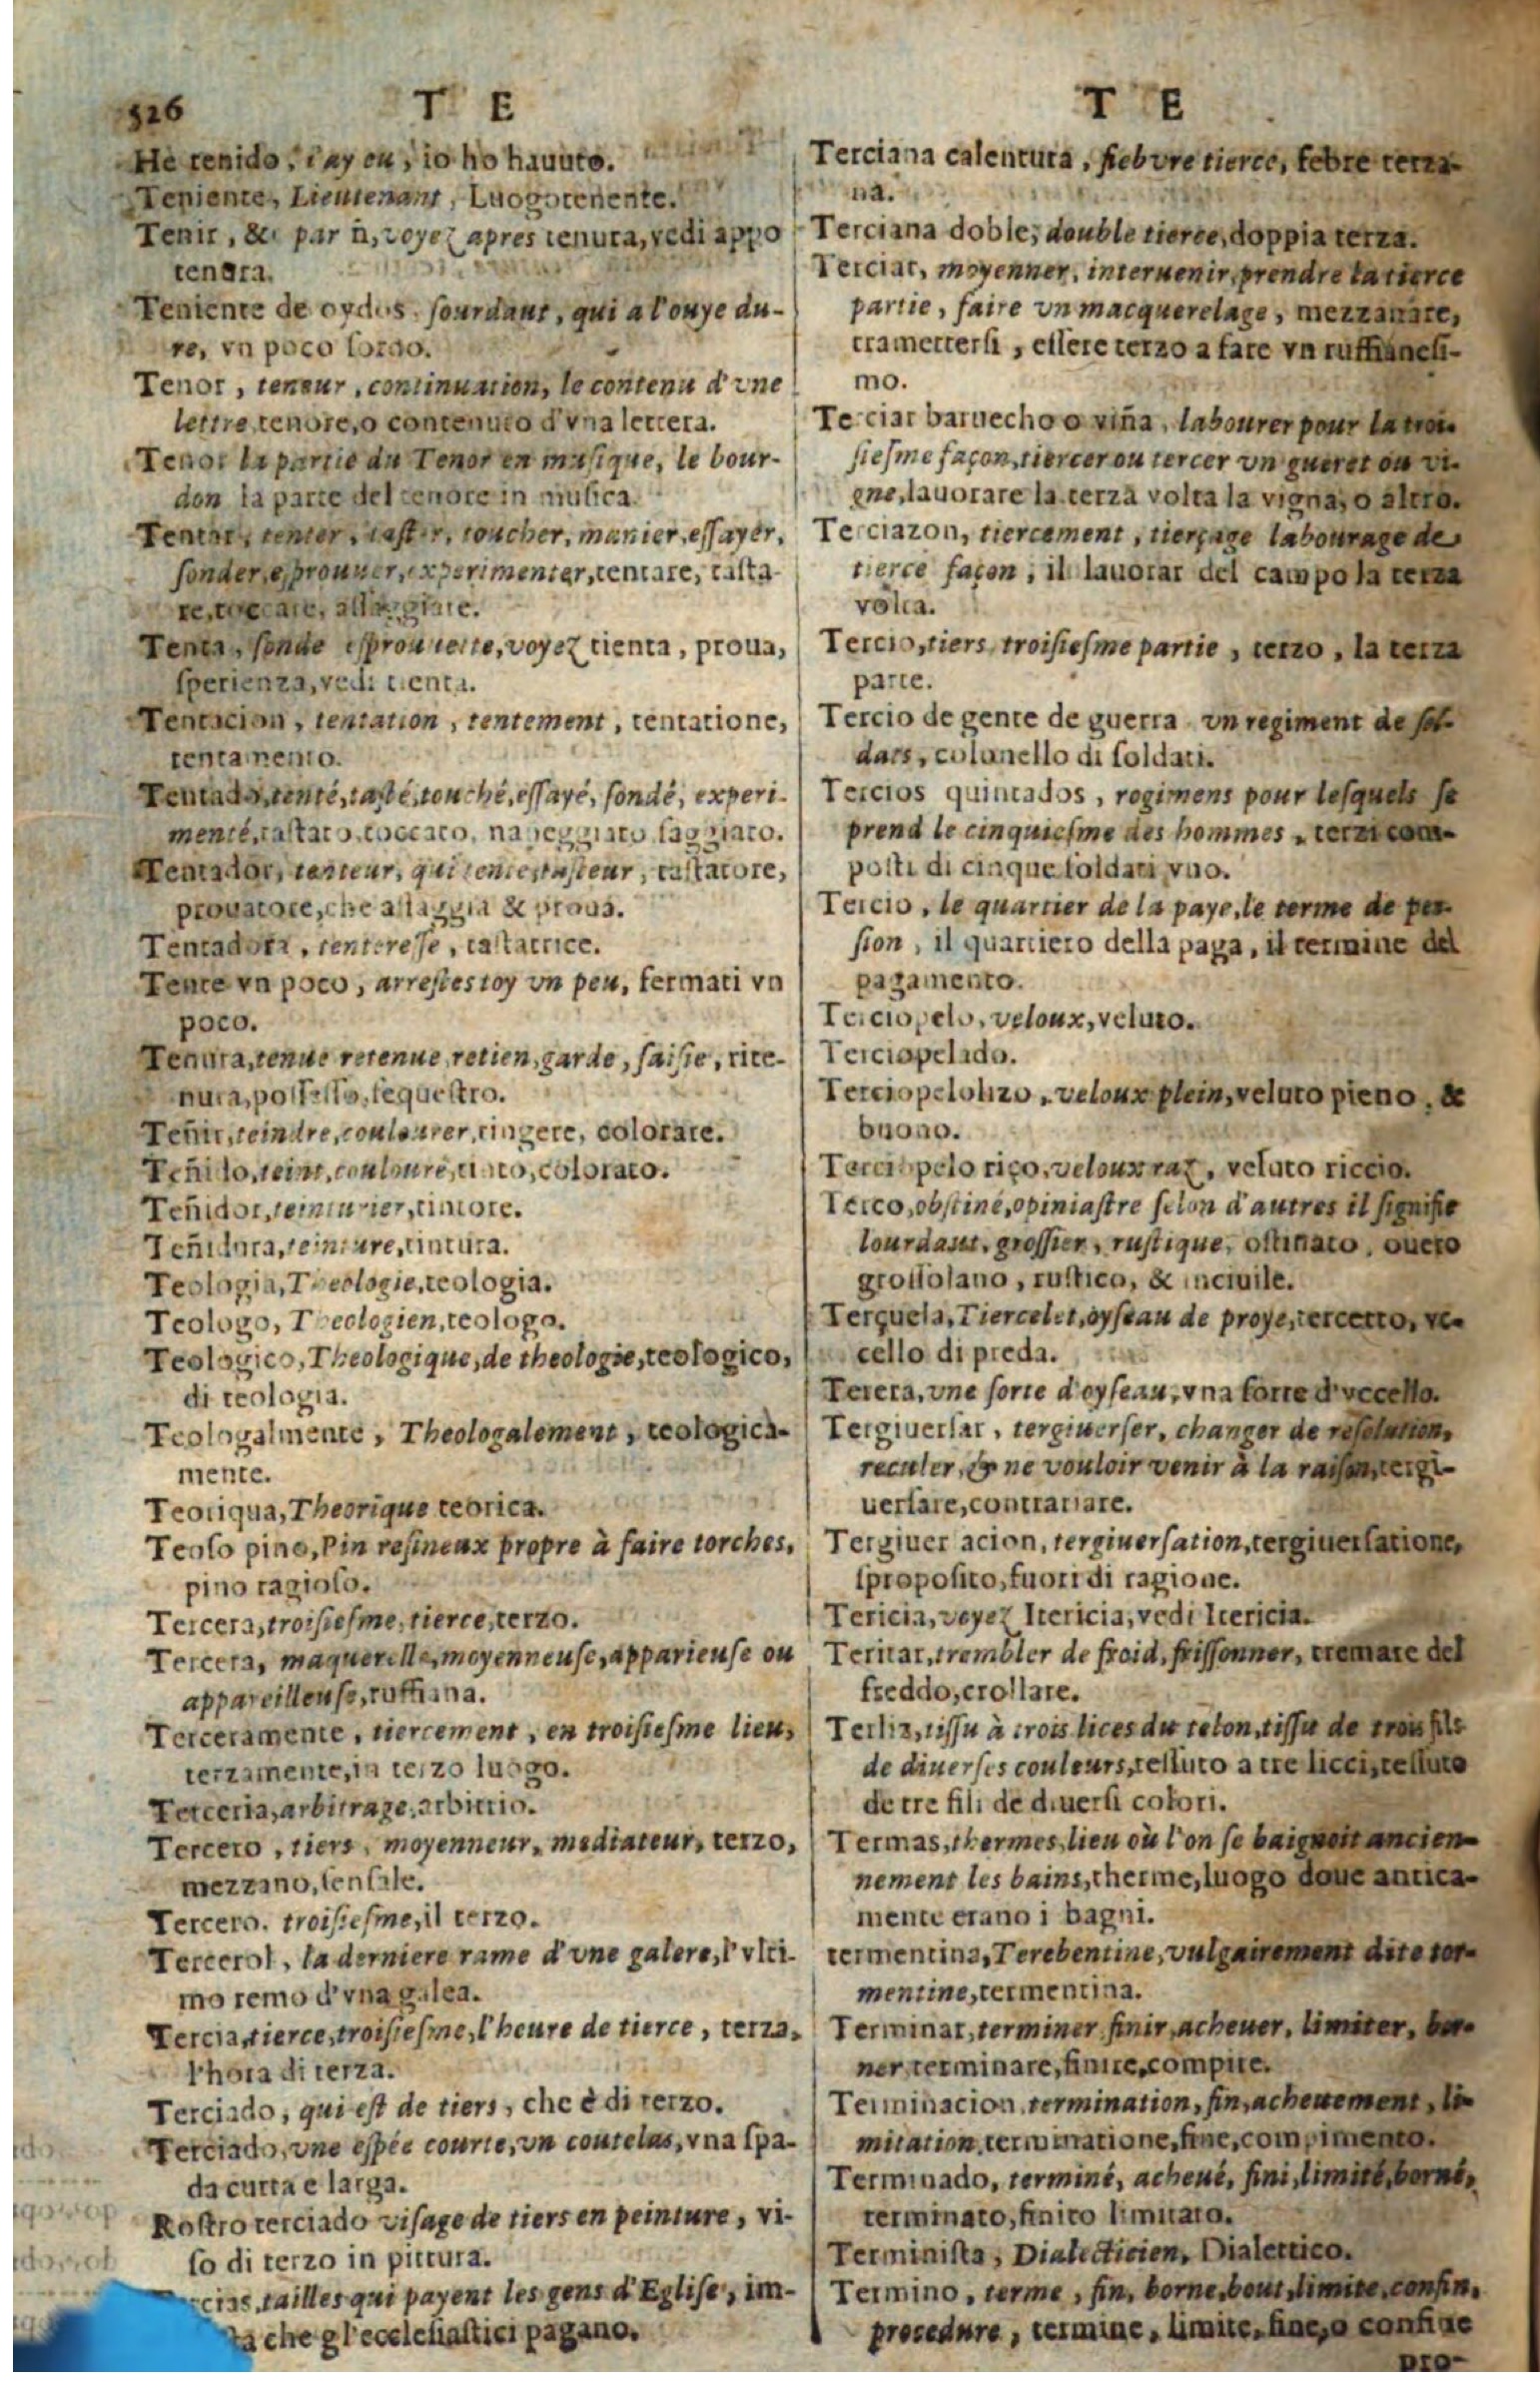 526
T E
He tenido, i'ay eu, io ho hauuto.
Teniente, Lieutenant, Luogotenente.
Tenir, &c par ñ, voyez apres tenura, vedi appo
tenura.
Teniente de oydos, sourdaut, qui a l'ouye du-
re, vn poco sordo.
Tenor, teneur, continuation, le contenu d'vne
lettre, tenore, o contenuto d'vna lettera.
Tenor la partie du Tenor en musique, le bour-
don la parte del tenore in musica.
Tentar, tenter, taster, toucher, manier, essayer,
sonder, esprouuer, experimenter, tentare, tasta-
re, toccare, assaggiare.
Tenta, sonde esprouuette, voyez tienta, proua,
sperienza, vedi tienta.
Tentacion, tentation, tentement, tentatione,
tentamento.
Tentado, tenté, tasté, touché, essayé, sondé, experi-
menté, tastato, toccato, saggiato.
Tentador, tenteur, qui tente, tasteur, tastatore,
prouatore, che assaggia & proua.
Tentadora, tenteresse, tastatrice.
Tente vn poco, arrestes toy vn peu, fermati vn
poco.
Tenura, tenue retenue, retien, garde, saisie, rite-
nuta, possesso, sequestro.
Teñir, teindre, coulourer, tingere, colorare.
Teñido, teint, coulouré, tinto, colorato.
Teñidor, teinturier, tintore.
Teñidura, teinture, tintura.
Teologia, Theologie, teologia.
Teologo, Theologien, teologo.
Teologico, Theologique, de theologie, teologico,
di teologia.
Teologalmente, Theologalement, teologica-
mente.
Teoriqua, Theorique teorica.
Teoso pino, Pin resineux propre à faire torches,
pino ragioso.
Tercera, troisiesme, tierce, terzo.
Tercera, maquerelle, moyenneuse, apparieuse ou
appareilleuse, ruffiana.
Terceramente, tiercement, en troisiesme lieu,
terzamente, in terzo luogo.
Terceria, arbitrage, arbitrio.
Tercero, tiers, moyenneur, mediateur, terzo,
mezzano, sensale.
Tercero. troisiesme, il terzo.
Tercerol, la derniere rame d'vne galere, l'vlti-
mo remo d'vna galea.
Tercia, tierce, troisiesme, l'heure de tierce, terza,
l'hora di terza.
Terciado, qui est de tiers, che è di terzo.
Terciado, vne espée courte, vn coutelas, vna spa-
da curta e larga.
Rostro terciado visage de tiers en peinture, vi-
so di terzo in pittura.
cias, tailles qui payent les gens d'Eglise, im-
ta che gl'ecclesiastici pagano.
T E
Terciana calentura, fiebvre tierce, febre terza-
na.
Terciana doble, double tierce, doppia terza.
Terciar, moyenner, interuenir, prendre la tierce
partie, faire vn macquerelage, mezzanare,
trametterſi, essere terzo a fare vn ruffianesi-
mo.
Terciar baruecho o viña, labourer pour la troi-
siesme façon, tiercer ou tercer vn gueret ou vi-
gne, lauorare la terza volta la vigna, o altro.
Terciazon, tiercement, tierçage labourage de
tierce façon, il lauorar del campo la terza
volta.
Tercio, tiers, troisiesme partie, terzo, la terza
parte.
Tercio de gente de guerra vn regiment de sol-
dats, colonello di soldati.
Tercios quintados, regimens pour lesquels se
prend le cinquiesme des hommes, terzi com-
posti di cinque soldati vno.
Tercio, le quartier de la paye, le terme de pen-
sion, il quartiero della paga, il termine del
pagamento.
Terciopelo, veloux, veluto.
Terciopelado.
Terciopelolizo, veloux plein, veluto pieno, &
buono.
Terciopelo riço, veloux raz, veluto riccio.
Terco, obstiné, opiniastre selon d'autres il signifie
lourdaut, grossier, rustique, ostinato, ouero
grossolano, rustico, & inciuile.
Terçuela, Tiercelet, oyseau de proye, tercetto, vc-
cello di preda.
Terera, vne sorte d'oyseau, vna sorte d'vccello.
Tergiuersar, tergiuerser, changer de resolution,
reculer, & ne vouloir venir à la raison, tergi-
uersare, contrariare.
Tergiuer acion, tergiuersation, tergiuersatione,
sproposito, fuori di ragione.
Tericia, voyez Itericia, vedi Itericia.
Teritar, trembler de froid, frissonner, tremare del
freddo, crollare.
Terliz, tissu à trois lices du telon, tissu de trois fils
de diuerses couleurs, tessuto a tre licci, tessuto
de tre fili de diuersi colori.
Termas, thermes, lieu où l'on se baignoit ancien-
nement les bains, therme, luogo doue antica-
mente erano i bagni.
termentina, Terebentine, vulgairement dite tor-
mentine, termentina.
Terminar, terminer finir, acheuer, limiter, bor-
ner terminare, finire, compire.
Terminacion, termination, fin, acheuement, li-
mitation, terminatione, fine, compimento.
Terminado, terminé, acheué, fini, limité, borné,
terminato, finito limitato.
Terminista, Dialecticien, Dialettico.
Termino, terme, fin, borne, bout, limite, confin,
procedure, termine, limite, fine, o confine
pro-